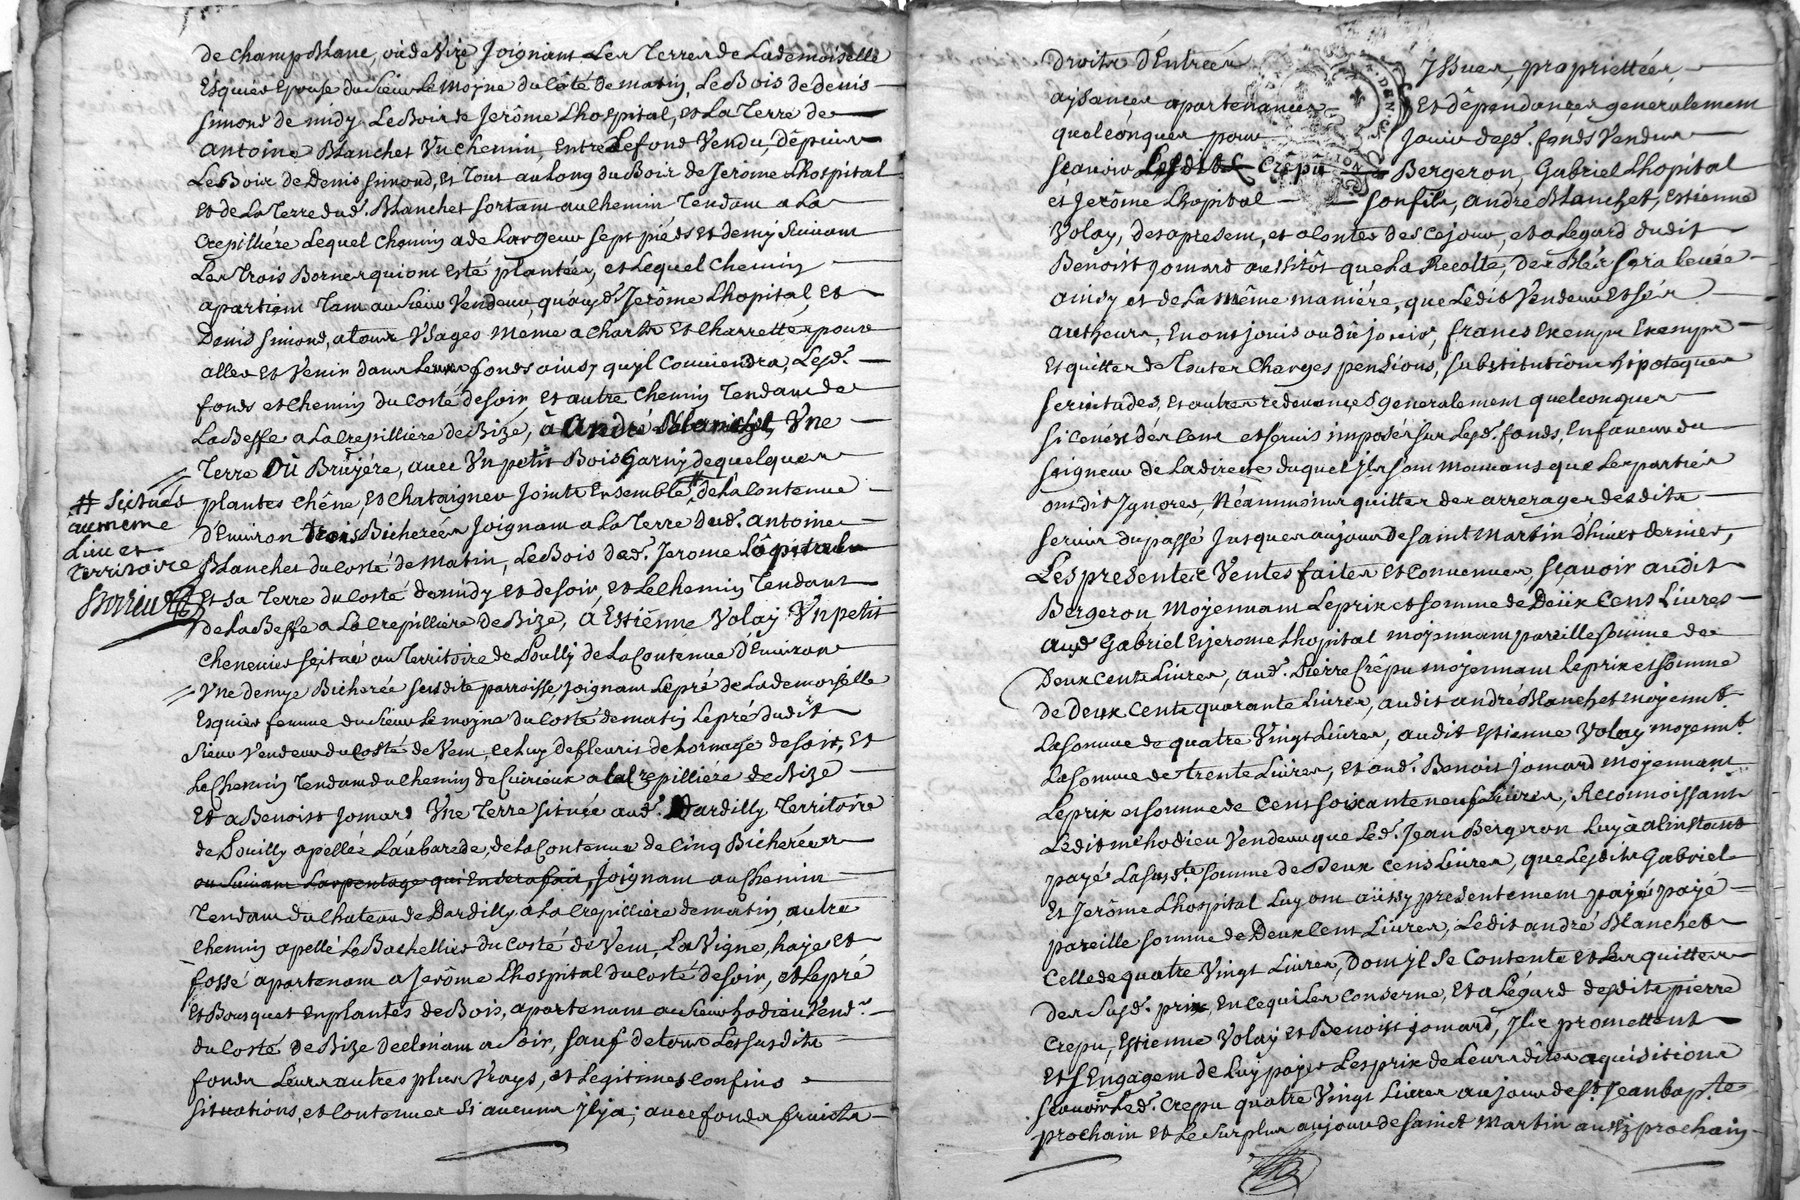 de Champ Blanc, ou de Vize Joignant Les Terres de Lademoiselle
Esquier Epouse du Sieur Lemoyne du Côté de matin, Le Bois de denis
Simond de midy Le Bois de Jerôme Lhospital, et La Terre de
Antoine Blanchet Un chemin, Entre Le fond Vendu, dépuis
Le Bois de Denis Simond, et Tout au Long du Bois de Jerome Lhospital
Et de La Terre dud. Blanchet sortant au Chemin Tendant a La
Crepilliére Lequel Chemin a de Largeur sept pieds et demy suivant
Les Trois Bornes qui ont esté plantées, et Lequel Chemin
apartient Tant au Sieur Vendeur, qu'aud. Jerôme Lhopital, et
Denis Simond, a tous Usages meme a Chart et Charrettes pour
aller et Venir dans Leurs fonds ainsy quil Conviendra, Lesd.
fonds et Chemin du Costé de soir, et autre Chemin Tendant de
La Beffe a La Crepilliére de Bize, à André Blanchet, Une
Terre Où Bruyére, avec Un petit Bois Garny de quelques
plantes Chêne, et Chataignier Joints Ensemble # de La Contenue
# situés
au même
Lieu et
Territoire
d'Environ trois Bicherées Joignant a La Terre dud. Antoine
Blanchet du Costé de Matin, Le Bois dud. Jerome Lôpital
Et sa Terre du Costé de midy et de soir, et Le Chemin Tendant
de La Beffe a La Crepilliére de Bize, à Estiênne Volay Un petit
Chenevier scitué au Territoire de Pouilly de La Contenue d'Environ
Une demye Bicherée susdite parroisse, Joignant Le pré de Lademoiselle
Esquier femme du Sieur Lemoyne du Costé de matin Le pré dudit
Sieur Vendeur du Costé de Vent, celuy de fleuris de hormage de soir, Et
Le Chemin Tendant du Chemin de Cuirieux a La Crepilliére de Bize
Et a Benoist Jomard Une Terre Située aud. Dardilly Territoire
de Pouilly apellée Laubarede, de La Contenue de Cinq Bicherées
ou suivant Larpentage qui En sera fait, Joignant au Chemin
Tendant du Chateau de Dardilly a La Crepilliére de matin, autre
Chemin apellé Le Bachellier du Costé de Vent, La Vigne, haye et
fossé apartenant a Jerôme Lhospital du Costé de soir, et Le pré
Et Bousquet En plantes de Bois, apartenant au Sieur hodieu Vendr.
du Costé de Bize declinant a Soir, sauf de tous Les susdits
fonds Leurs autres plus Vrays, et Legitimes Confins
situations, et Contenues si aucuns Il y a; avec fonds fruits
droits d'Entrées Issues, propriettées,
aysances apartenances Et dépendances generalement
quelconques pour Jouir desd. fonds Vendus
scavoir Bergeron, Gabriel Lhopital
et Jerôme Lhopital son fils, andré Blanchet, Estienne
Volay, des apresent, et a Conter de ce jour, et a Legard dudit
Benoist Jomard aussitôt que La Recolte, des Bleds sera levée
ainsy et de La même maniére, que Ledit Vendeur et ses
autheurs, En ont jouis ou dû jouir, francs Exempts Exempts
Et quittes de Toutes Charges pensions, substitutions hipoteques
servitudes, et autres redevances generalement quelconques
si cen'est des Cens et servis imposés sur Lesd. fonds, En faveur du
seigneur de La directe duquel Ils sont mouvans que Les parties
ont dit Ignorer, Néanmoins quittes des arrerages desdits
servis du passé Jusques au jour de saint Martin d'hiver dernier,
Les presentes Ventes faites et Convenues, scavoir audit
Bergeron, Moyennant Le prix et somme de Deux Cens Livres
aud. Gabriel et Jerome Lhopital moyennant pareille somme de
Deux Cents Livres, aud. Pierre Crêpu moyennant le prix et somme
de Deux Cents quarante Livres, audit andré Blanchet moyennt.
La somme de quatre Vingt Livres, audit Estienne Volay moyennt.
La somme de trente Livres, Et aud. Benoist Jomard moyennant
Le prix et somme de Cent soixante neuf Livres, Reconnoissant
Ledit me. hodieu Vendeur que Led. Jean Bergeron Luy à alinstant
payé La susdte. somme de Deux Cens Livres, que Lesdits Gabriel
Et Jerôme Lhospital Luy ont aussy presentement payé payé
pareille somme de Deux Cent Livres, Ledit andré Blanchet
Celle de quatre Vingt Livres, Dont yl se Contente et Les quitte
des susd. prix, En ce qui Les Conserne, Et a Légard desdits pierre
Crepu, Estienne Volay et Benoist jomard, Ils promettent
Et s'Engagent de Luy payer Les prix de Leurs dites aquisitions
scavoir Led. Crepu quatre Vingt Livres au jour de St. Jean bapte.
prochain et Le surplus au jour de saint Martin aussy prochain